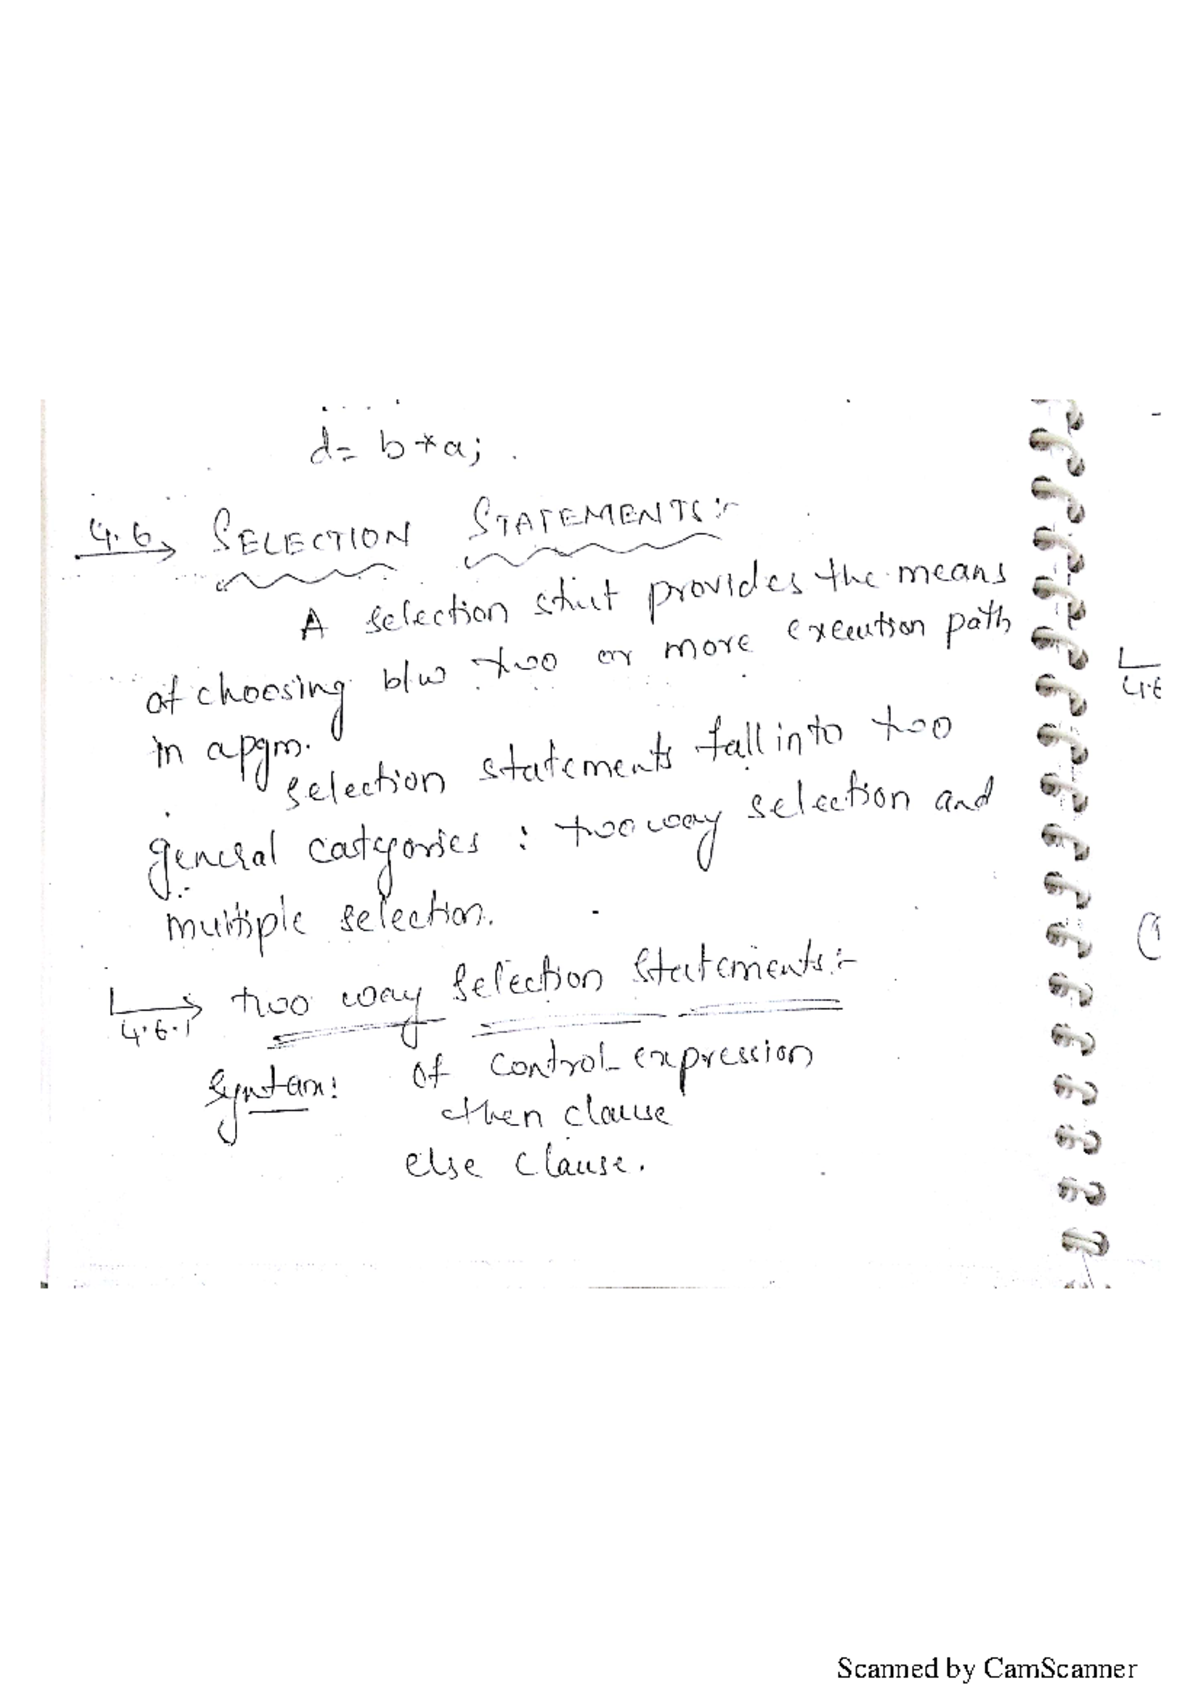 d= b*a;
4.6 SELECTION STATEMENTS:-
A selection stmt provides the means
of choosing b/w two or more execution path
in a pgm.
Selection statements fall into two
general categories : two way selection and
multiple selection.
4.6.1 two way Selection Statements:-
Syntax: if control-expression
then clause
else clause.
4.6
(1
Scanned by CamScanner